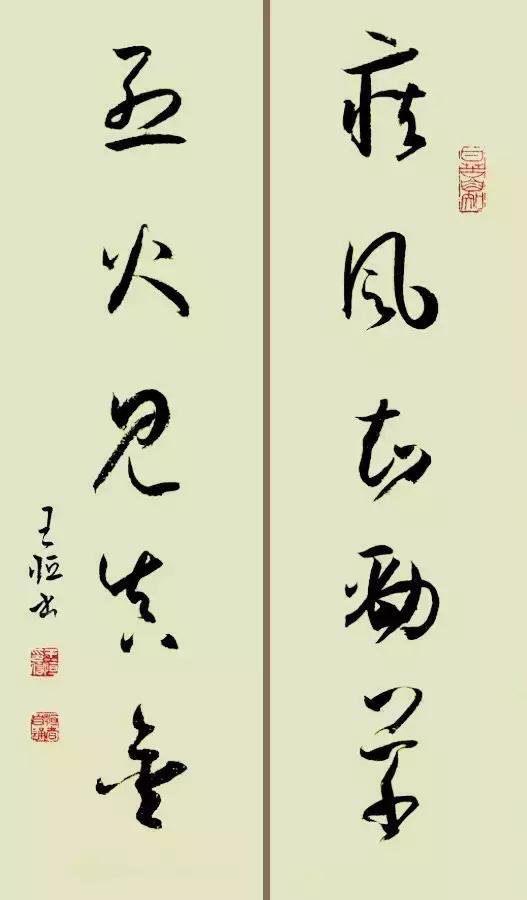 疾风知劲草
烈火见真金
王恒书